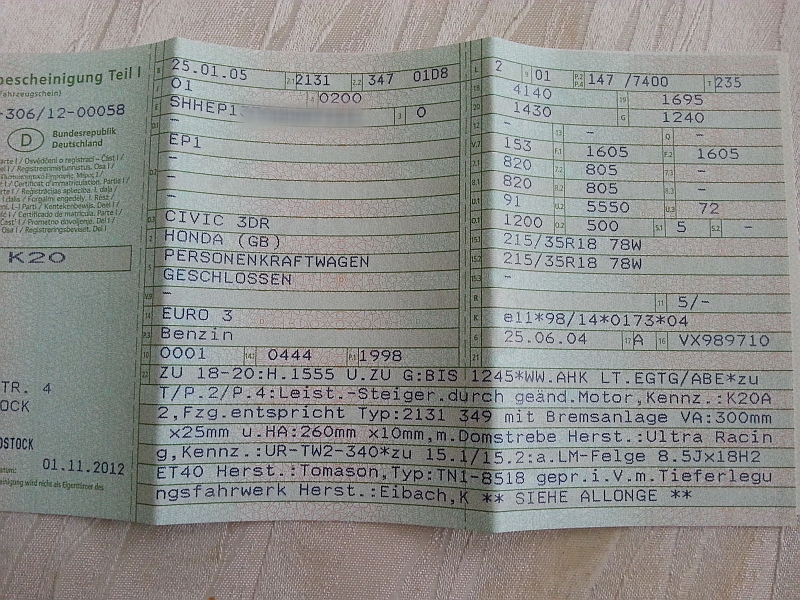 bescheinigung Teil I
Fahrzeugschein)
-306/12-00058
D Bundesrepublik
Deutschland
K20
TR. 4
OCK
OSTOCK
01.11.2012
B 25.01.05 2.1 2131 2.2 347 01D8
01 4 0200
SHHEP1 3 0
-
EP1
-
-
D.3 CIVIC 3DR
2 HONDA (GB)
5 PERSONENKRAFTWAGEN
GESCHLOSSEN
V.9 -
14 EURO 3
P.3 Benzin
10 0001 14.1 0444 P.1 1998
L 2 9 01 P.2 P.4 147 /7400 T 235
18 4140 19 1695
20 1430 G 1240
12 - 13 - Q -
V.7 153 F.1 1605 F.2 1605
7.1 820 7.2 805 7.3 -
8.1 820 8.2 805 8.3 -
U.1 91 U.2 5550 U.3 72
O.1 1200 O.2 500 S.1 5 S.2 -
15.1 215/35R18 78W
15.2 215/35R18 78W
15.3 -
R 11 5/-
K e11*98/14*0173*04
6 25.06.04 17 A 16 VX989710
21
22 ZU 18-20:H.1555 U.ZU G:BIS 1245*WW.AHK LT.EGTG/ABE*zu
T/P.2/P.4:Leist.-Steiger.durch geänd.Motor,Kennz.:K20A
2,Fzg.entspricht Typ:2131 349 mit Bremsanlage VA:300mm
x25mm u.HA:260mm x10mm,m.Domstrebe Herst.:Ultra Racin
g,Kennz.:UR-TW2-340*zu 15.1/15.2:a.LM-Felge 8.5Jx18H2
ET40 Herst.:Tomason,Typ:TN1-8518 gepr.i.V.m.Tieferlegu
ngsfahrwerk Herst.:Eibach,K ** SIEHE ALLONGE **